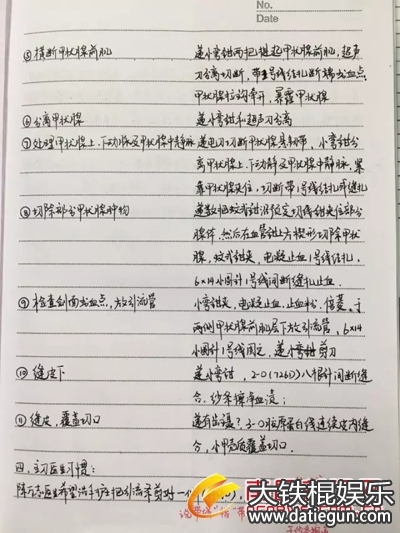 No.
Date
⑤横断甲状腺前肌 递小弯钳两把提起甲状腺前肌,超声
刀分离切断,带1号线结扎断端出血点,
甲状腺拉钩牵开,暴露甲状腺
⑥分离甲状腺 递小弯钳和超声刀分离
⑦处理甲状腺上、下动脉及甲状腺中静脉 递电刀切断甲状腺悬韧带,小弯钳分
离甲状腺上、下动静及甲状腺中静脉,
幕甲状腺夹住,切断带1号线结扎再缝扎
⑧切除部分甲状腺肿物 递数把蚊式钳沿预定切线钳夹住部分
腺体,然后在血管钳上方楔形切除甲状
腺,蚊式钳夹,电凝止血1号线结扎,
6×14小圆针1号线间断缝扎止血.
⑨检查创面出血点,放引流管 小弯钳夹,电凝止血,止血粉.倍菱,于
两侧甲状腺前肌层下放引流管,6×14
小圆针1号线固定,递小弯钳剪刀
⑩缝皮下 递小弯钳,2-0()八根针间断缝
合.纱条擦净血渍;
⑪缝皮,覆盖切口 递有齿镊?3-0胶原蛋白线连续皮内缝
合,小甲壳质覆盖切口.
四.主刀医生习惯:
医生希望洗手护士把引流条剪对一
大铁棍娱乐
www.datiegun.com